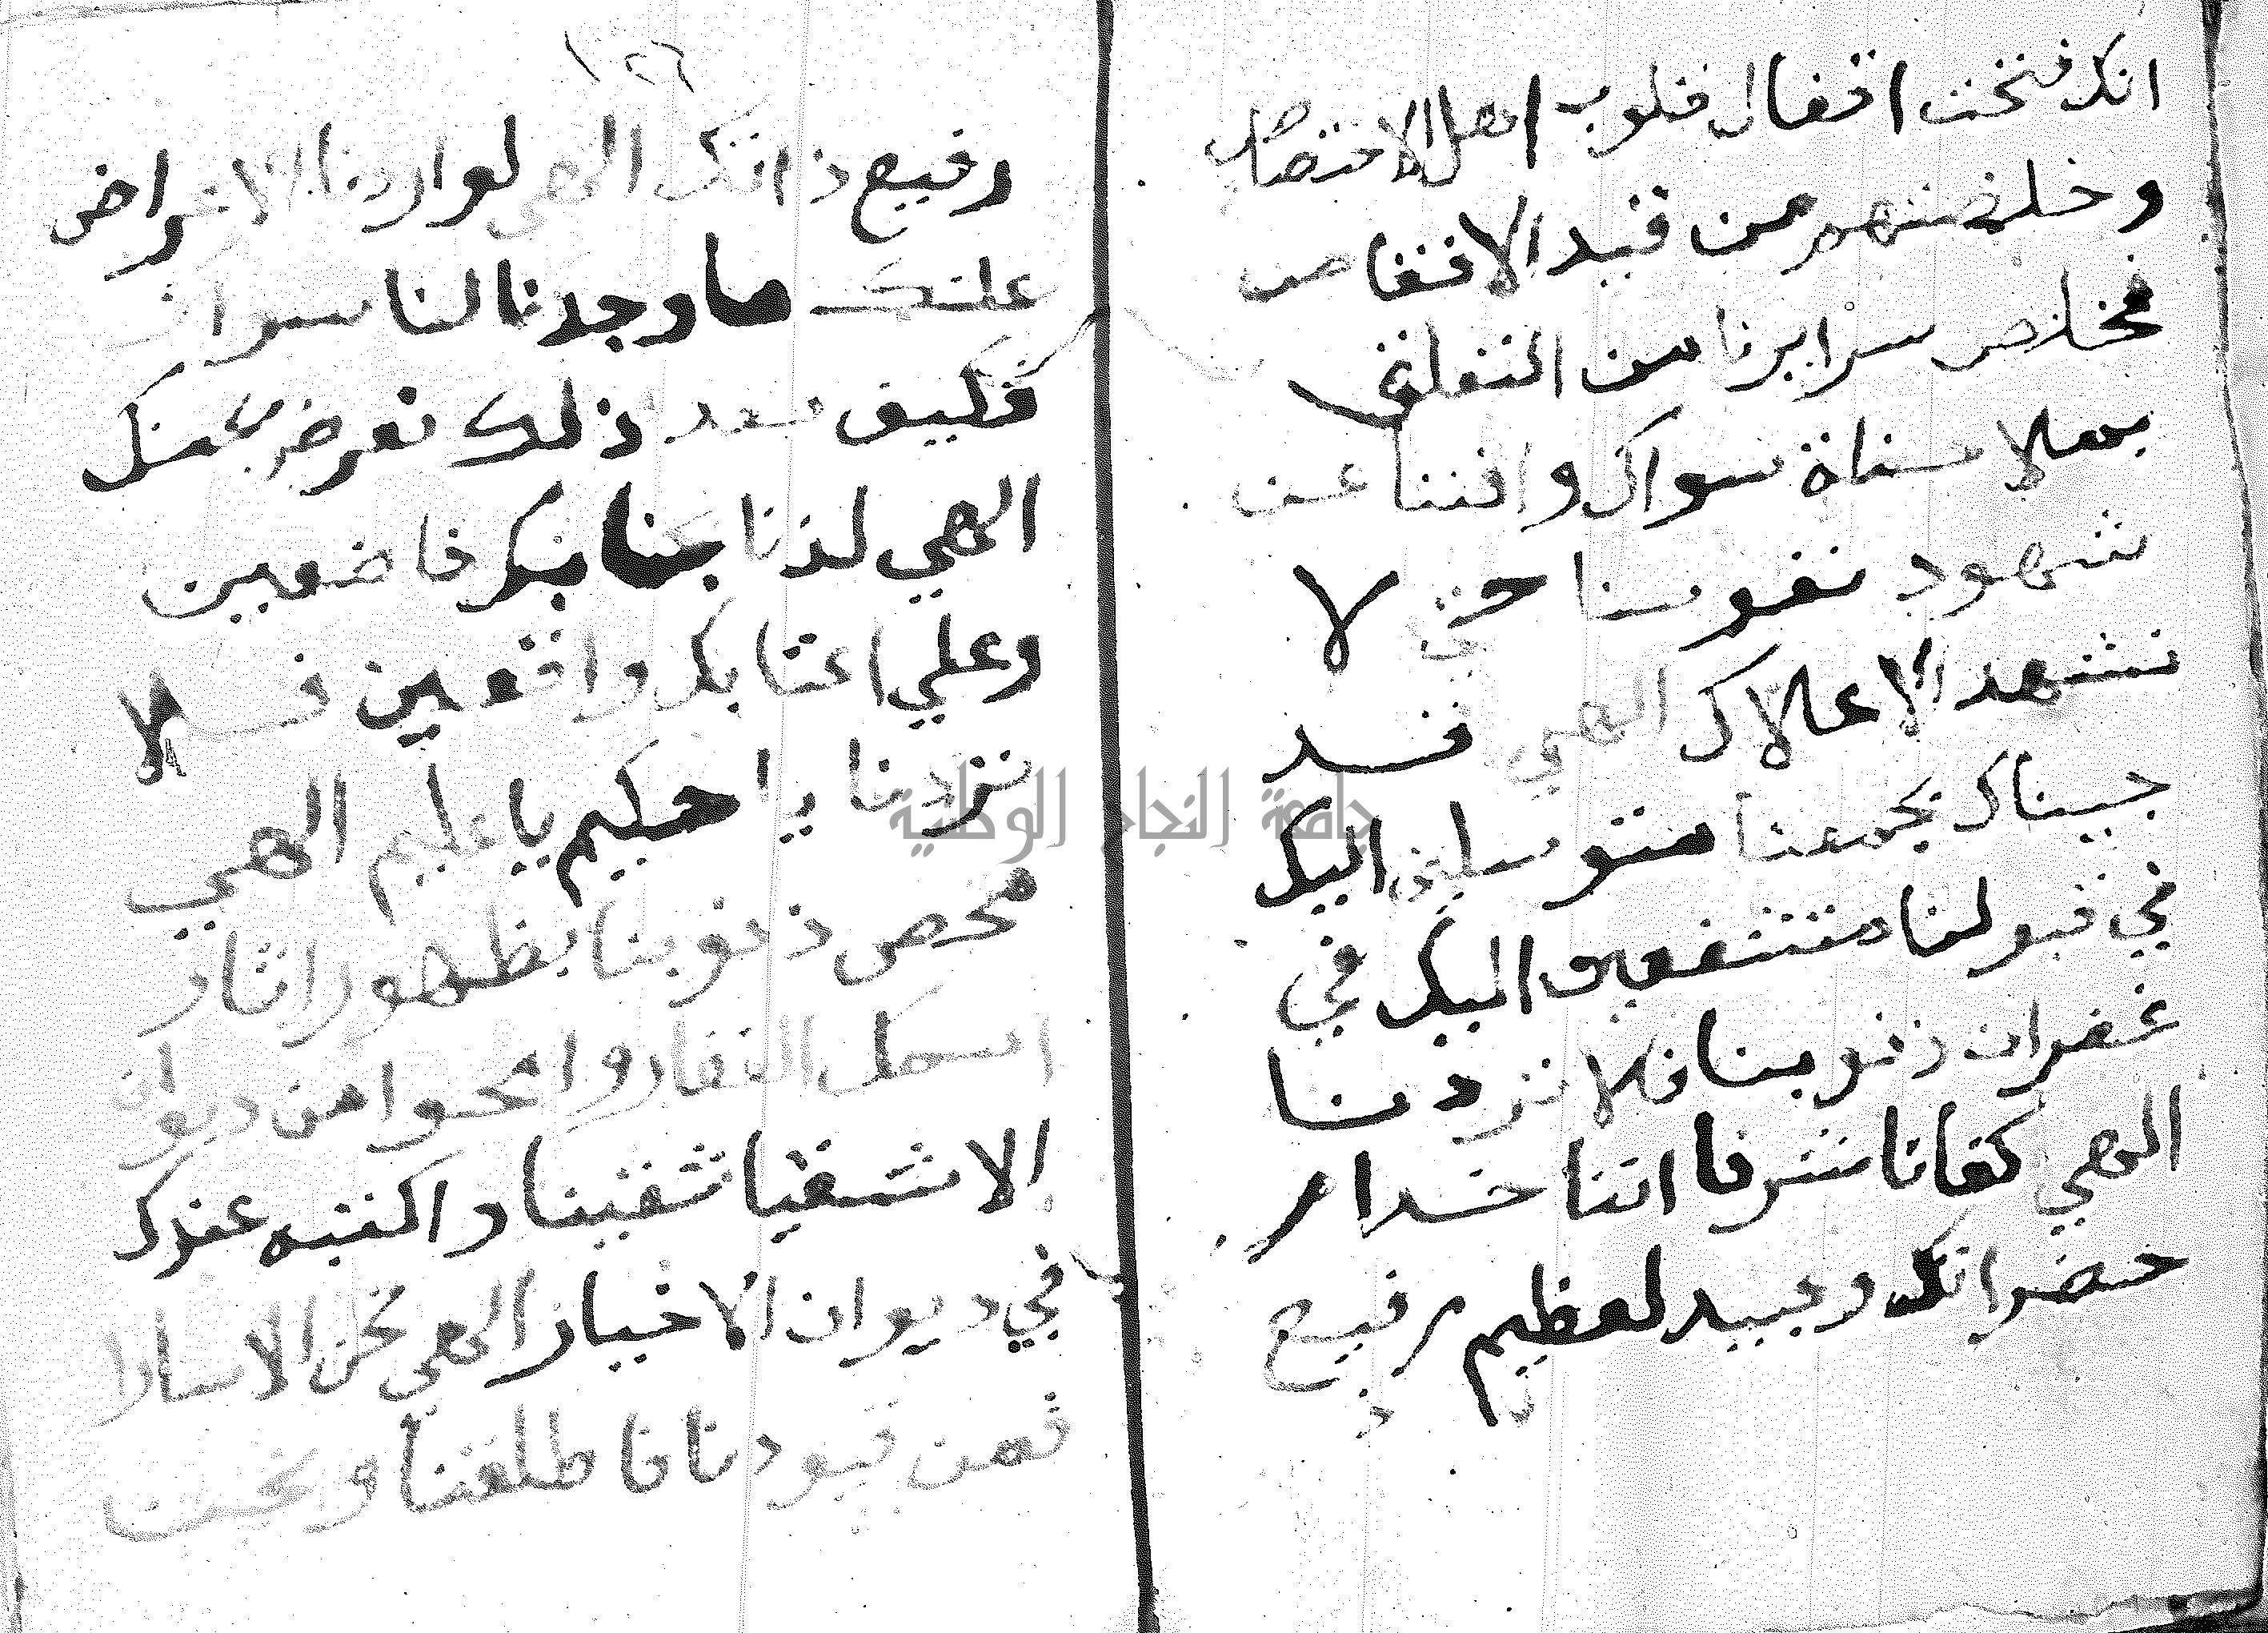 انك فتحت اقفال قلوب اهل الاختصاص
وخلصتهم من قيد الاقفاص
فخلص سرايرنا من التعلق
بملاحظة سواك وافننا عن
شهود نفوسنا حتي لا
نشهد الا علاك الهي قد
جيناك بجمعنا متوسلين اليك
في قبولنا متشفعين اليك في
غفران ذنوبنا فلا تردنا
الهي كفانا شرفا اننا خدام
حضراتك وعبيد لعظيم رفيع
ذ
١٢٦
رفيع ذاتك الهي لو اردنا الاعراض
عليك ما وجدنا لنا سواك
فكيف بعد ذلك نعرض عنك
الهي لذنا بجنابك خاضعين
وعلي اعتابك واقعين فلا
تردنا يا حكيم يا عليم الهي
محص ذنوبنا بظهور اثار
اسمك الغفار وامحوا من ديوان
الاشقيا شقينا واكتبه عندك
في ديوان الاخيار الهي نحن الاسارا
فمن قيودنا فاطلقنا و
جامعة النجاح الوطنية